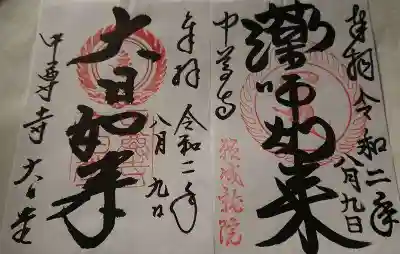 奉拝 令和二年
八月九日
薬師如来
中尊寺
奉拝 令和二年
八月九日
大日如来
中尊寺 大日堂